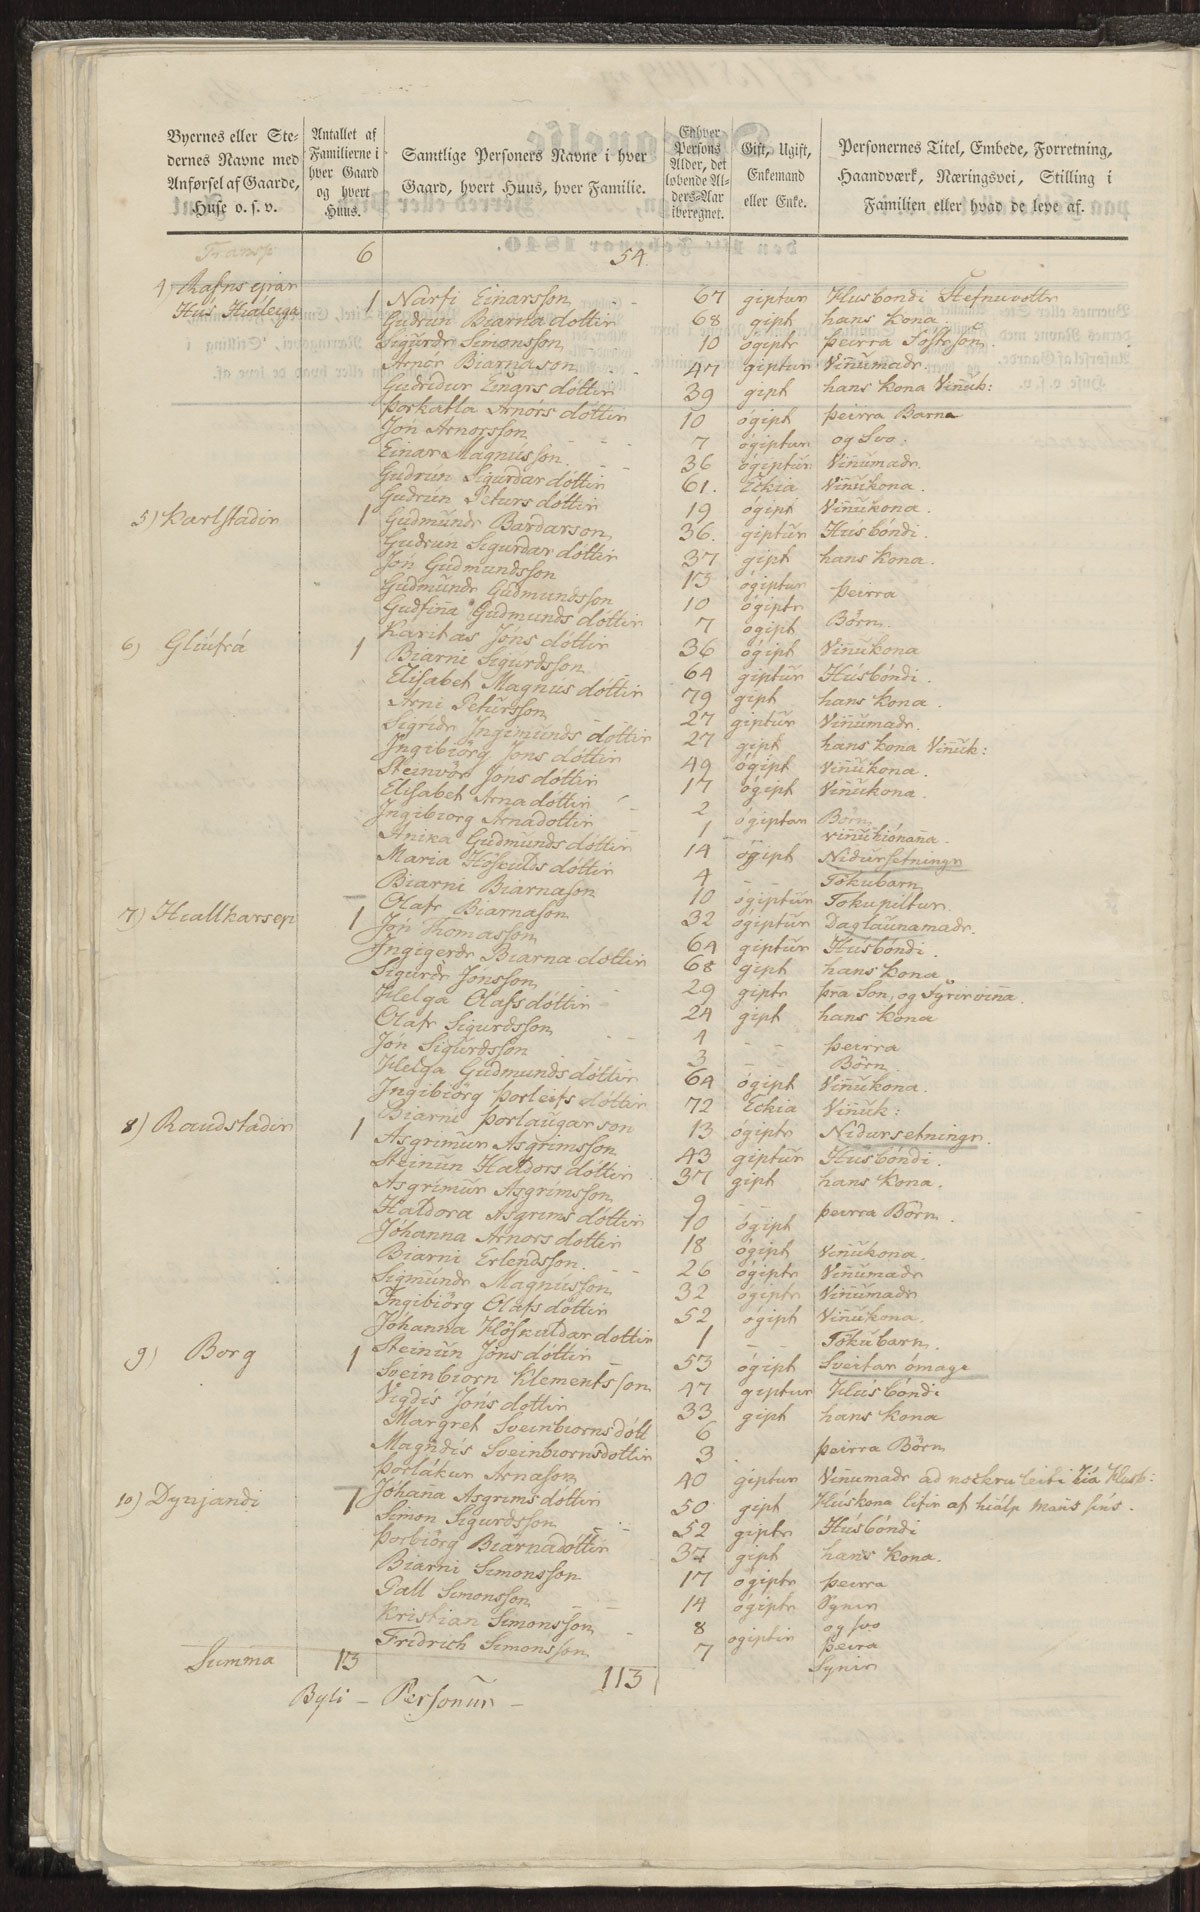 Byernes eller Stedernes Navne med Anførsel af Gaarde, Huse o. s. v. | Antallet af Familierne i hver Gaard og hvert Huus. | Samtlige Personers Navne i hver Gaard, hvert Huus, hver Familie. | Enhver Persons Alder, det løbende Alders-Aar iberegnet. | Gift, Ugift, Enkemand eller Enke. | Personernes Titel, Embede, Forretning, Haandværk, Næringsvei, Stilling i Familien eller hvad de leve af.
Transp 6 54.
4) Rafnseirar
Hús Hiáleiga 1 Narfi Einarsson 67 giptur Husbondi Stefnuvottr
Gudrun Biarnadóttir 68 gipt hans kona
Sigurdr Simonsson 10 ógiptr þeirra Fóstrson
Arnór Biarnason 47 giptur Vinnumadr.
Gudridur Einars dóttir 39 gipt hans kona Vinnuk:
Þorkatla Arnórs dóttir 10 ógipt þeirra Barna
Jón Arnorsson 7 ógiptur og Svo:
Einar Magnússon 36 ógiptur Vinnumadr.
Gudrún Sigurdar dóttir 61. Eckia Vinnukona.
Gudrun Peturs dóttir 19 ógipt Vinnukona.
5) Karlstadir 1 Gudmundr Bardarson 36. giptur Húsbóndi.
Gudrun Sigurdar dóttir 37 gipt hans kona.
Jón Gudmundsson 13 ógiptur þeirra
Gudmundr Gudmundsson 10 ógiptr
Gudfinna Gudmunds dóttir 7 ógipt Börn.
Karitas Jóns dóttir 36 ógipt Vinnukona
6) Gliúfrá 1 Biarni Sigurdsson 64 giptur Húsbóndi.
Elisabet Magnús dóttir 79 gipt hans kona.
Arni Petursson 27 giptur Vinnumadr.
Sigridr Ingimunds dóttir 27 gipt hans kona Vinnuk:
Ingibiörg Jons dóttir 49 ógipt Vinnukona.
Steinvör Jóns dóttir 17 ógipt Vinnukona.
Elisabet Arnadóttir 2 ógiptar Börn
Ingibiorg Arnadottir 1 vinnukiónanna.
Anika Gudmunds dóttir 14 ógipt Nidursetningr
Maria Höskulds dóttir 4 Tökubarn
Biarni Biarnason 10 ógiptur Tökupiltur.
Olafr Biarnason 32 ógiptur Daglaunamadr.
7) Hiallkarseyri 1 Jón Thomasson 64 giptur Húsbóndi.
Ingigerdr Biarna dóttir 68 gipt hans kona
Sigurdr Jónsson 29 giptr þra Son, og Fyrirvinna.
Helga Olafsdóttir 24 gipt hans kona
Olafr Sigurdsson 4 þeirra
Jón Sigurdsson 3 Börn.
Helga Gudmunds dóttir 64 ógipt Vinnukona.
Ingibiörg Þorleifs dóttir 72 Eckia Vinnuk:
Biarni Þorlaugarson 13 ógiptr Nidursetningr.
8) Raudstadir 1 Asgrimur Asgrimsson 43 giptur Húsbóndi.
Steinun Haldors dóttir 37 gipt hans kona.
Asgrimur Asgrimsson 9 þeirra Börn.
Haldora Asgrims dóttir 10 ógipt
Jóhanna Arnors dottir 18 ógipt Vinnukona.
Biarni Erlendsson. 26 ógiptr Vinnumadr
Sigmúndr Magnússon 32 ógiptr Vinnumadr
Ingibiörg Olafs dóttir 52 ógipt Vinnukona.
Jóhanna Höskuldar dottir 1 Tökubarn.
Steinun Jóns dóttir 53 ógipt Sveitar ómage
9) Borg 1 Sveinbiorn Klementsson 47 giptur Húsbóndi
Vigdís Jóns dóttir 33 gipt hans kona
Margret Sveinbiorns dótt 6
Magndís Sveinbiornsdottir 3 þeirra Börn
Þorlákur Arnason 40 giptur Vinnumadr ad nockru leiti hiá Husb:
Jóhanna Asgrims dóttir 50 gipt Húskona lifir af hiálp manns sins.
10) Dynjandi 1 Simon Sigurdsson 52 giptr Húsbóndi
Þorbiörg Biarnadóttir 37 gipt hans kona.
Biarni Simonsson 17 ógiptr þeirra
Pall Simonsson 14 ógiptr Synir
Kristian Simonsson 8 ógiptir og svo
Fridrich Simonsson 7 þeira Synir
Summa 13 113
Byli - Personur -